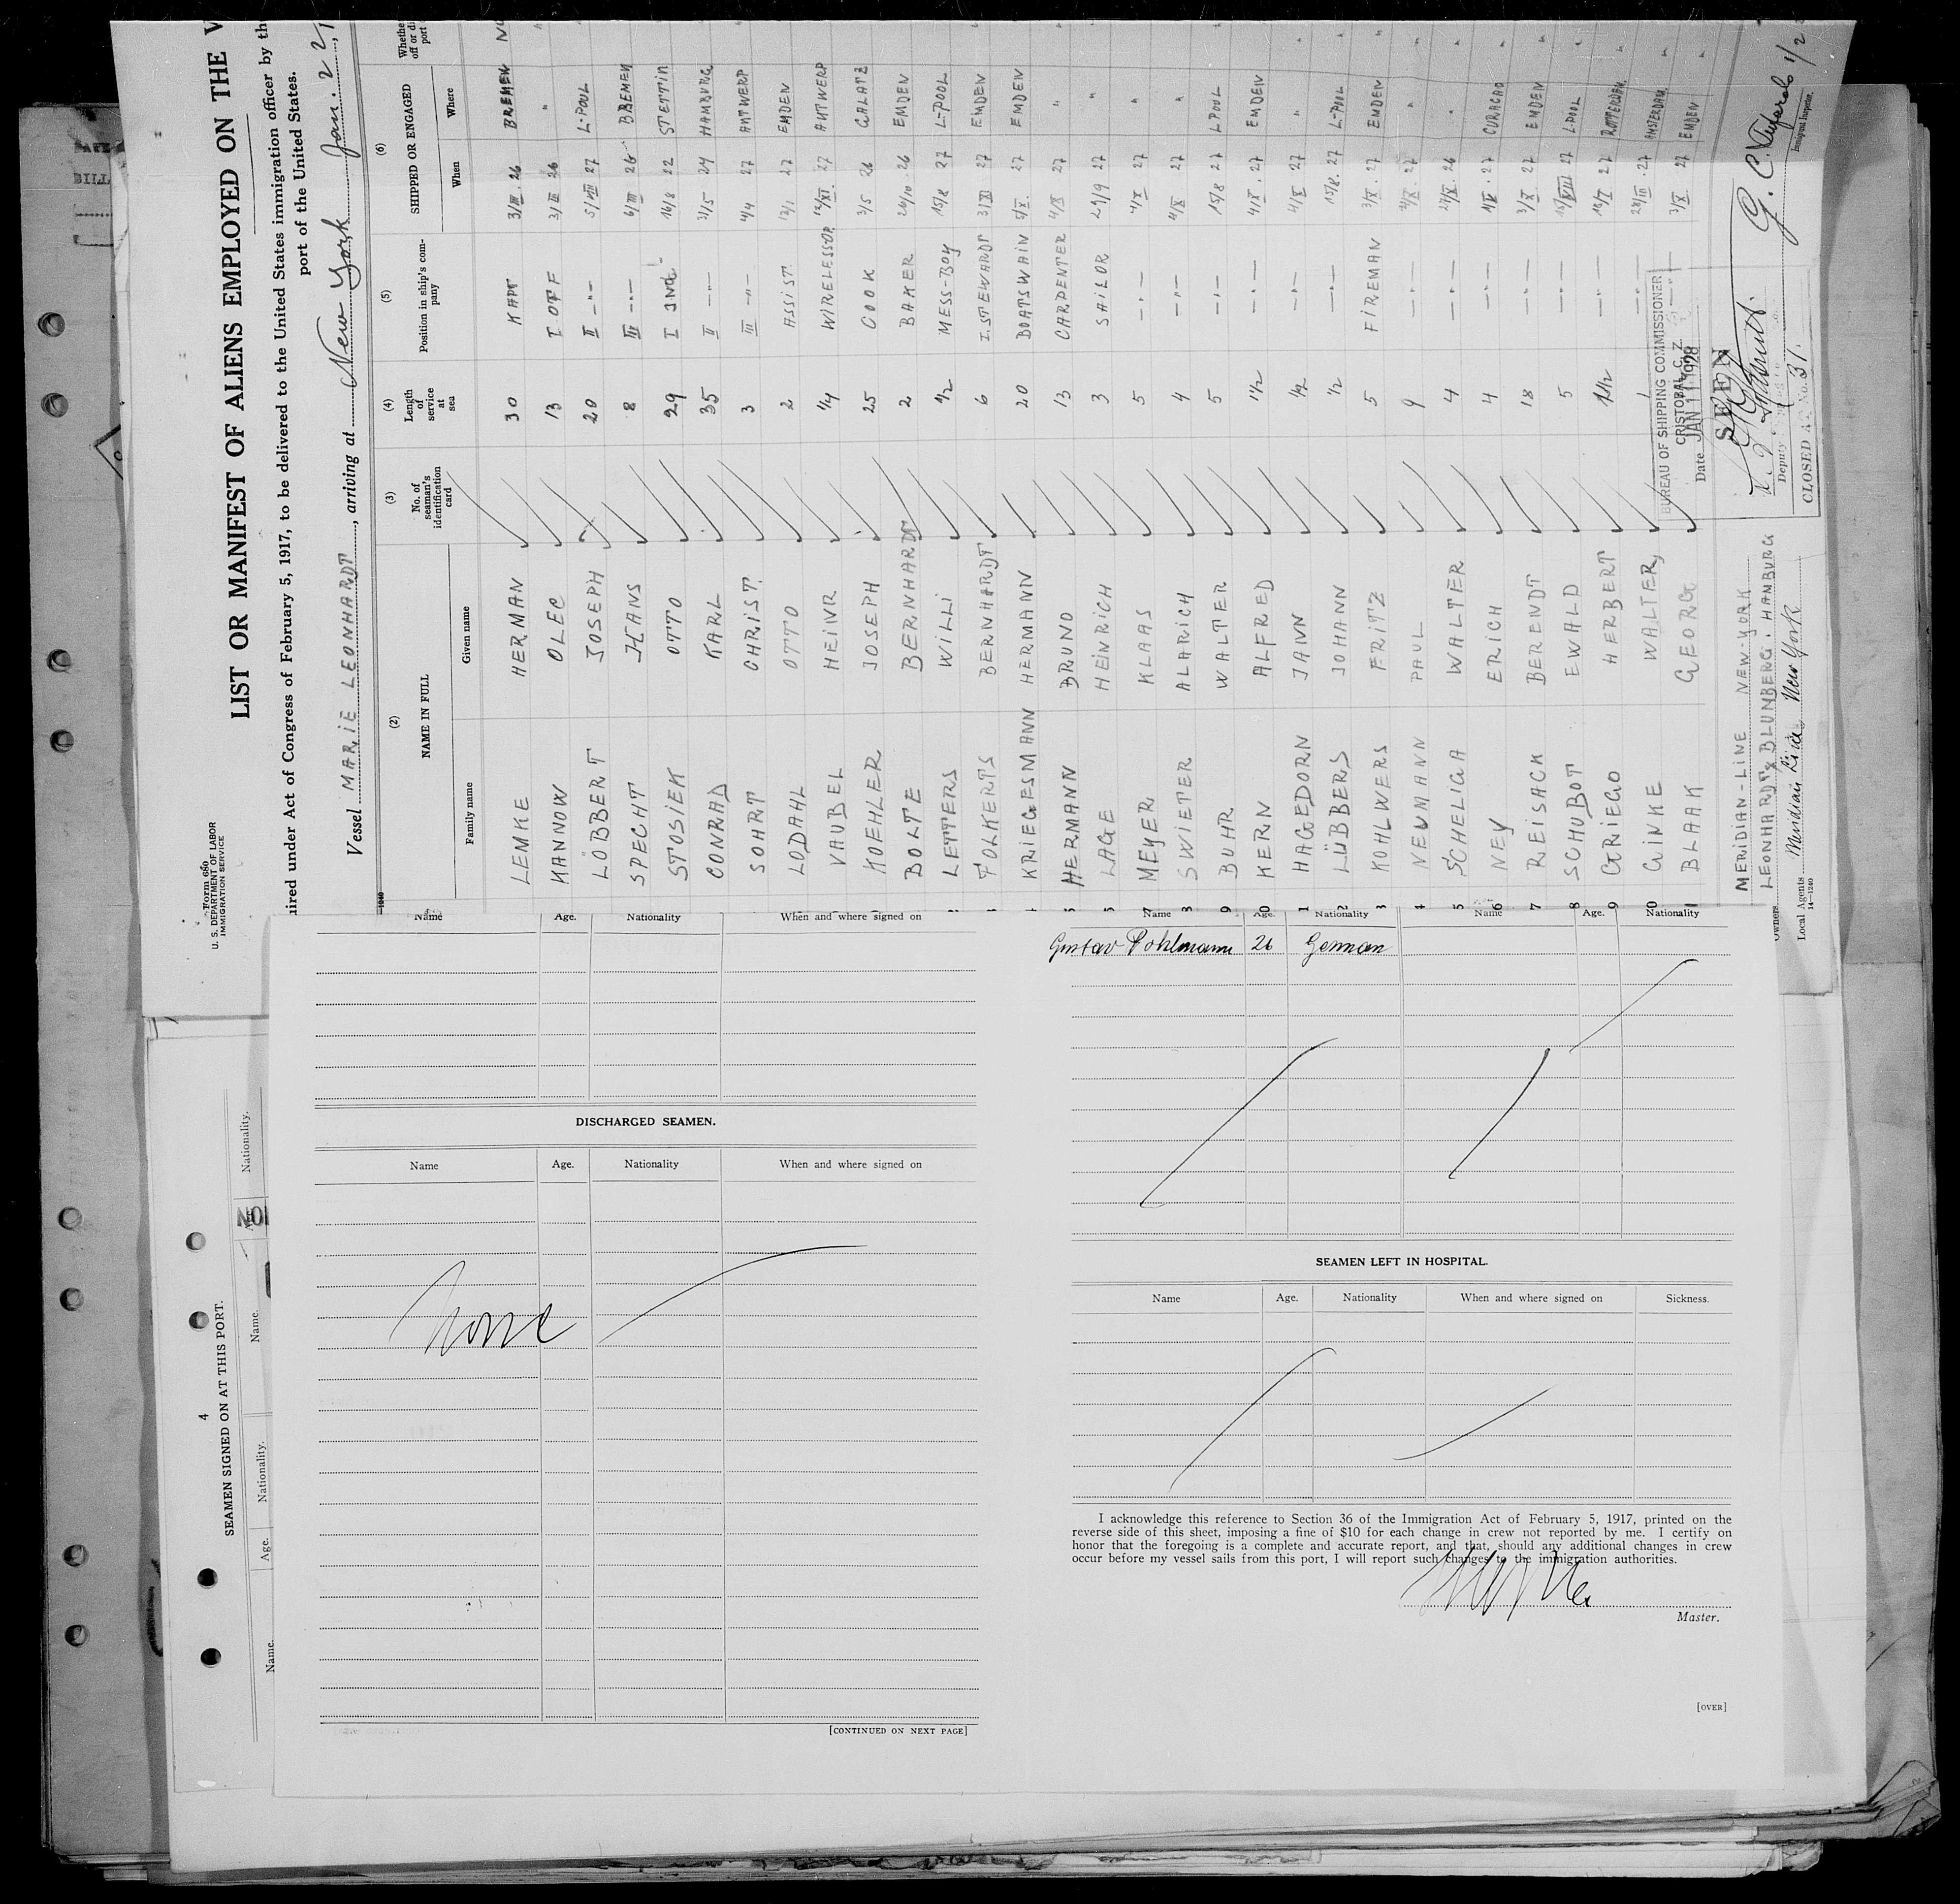 Form 680
U. S. DEPARTMENT OF LABOR
IMMIGRATION SERVICE
LIST OR MANIFEST OF ALIENS EMPLOYED ON THE V
uired under Act of Congress of February 5, 1917, to be delivered to the United States immigration officer by th
port of the United States.
Vessel MARIE LEONHARDT, arriving at New York Jan. 2
(2) (3) (4) (5) (6)
NAME IN FULL No. of seaman's identification card Length of service at sea Position in ship's company SHIPPED OR ENGAGED
Family name Given name When Where
LEMKE HERMAN 30 KAPT 3/III. 26 BREMEN
KANNOW OLEC 13 I OFF 3/III 26 "
LÖBBERT JOSEPH 20 II -"- 27 L-POOL
SPECHT HANS 8 III -"- 6/III 26 BREMEN
STOSIEK OTTO 29 I 16/8 22 STETTIN
CONRAD KARL 35 II -"- 31/5 24 HAMBURG
SOHRT CHRIST. 3 III -"- 4/4 27 ANTWERP
LODAHL OTTO 2 ASSIST. 12/1 27 EMDEN
VAUBEL HEINR 1/4 WIRELESS-OP. 27 ANTWERP
KOEHLER JOSEPH 25 COOK 3/5 26 GALATZ
BOLTE BERNHARDT 2 BAKER 26 EMDEN
LETTERS WILLI 1/2 MESS-BOY 15/8 27 L-POOL
FOLKERTS BERNHARDT 6 I. STEWARDT 27 EMDEN
KRIEGESMANN HERMANN 20 BOATSWAIN 5/X. 27 EMDEN
HERMANN BRUNO 13 CARPENTER 27 "
LAGE HEINRICH 3 SAILOR 29/9 27 "
MEYER KLAAS 5 -"- 4/X 27 "
SWIETER ALARICH 4 -"- 4/X 27 "
BUHR WALTER 5 -"- 15/8 27 L POOL
KERN ALFRED 1 1/2 -"- 4/X. 27 EMDEN
HAGEDORN JANN 1/2 -"- 4/X 27 "
LÜBBERS JOHANN 1/2 -"- 15/8. 27 L-POOL
KOHLWERS FRITZ 5 FIREMAN 3/X. 27 EMDEN
NEUMANN PAUL 9 -"- 27 "
SCHELIGA WALTER 4 -"- 26 "
NEY ERICH 4 -"- 27 CURACAO
REISACK BERENDT 18 -"- 3/X 27 EMDEN
SCHUBOT EWALD 5 -"- 27 L-POOL
GRIEGO HERBERT 1 1/2 -"- 27 ROTTERDAM
GINKE WALTER 1 -"- 27 AMSTERDAM
BLAAK GEORG 3/X 27 EMDEN
BUREAU OF SHIPPING COMMISSIONER
CRISTOBAL, C. Z.
Date JAN 11 1928
SEEN
Deputy
CLOSED No. 31
Immigrant Inspector.
MERIDIAN-LINE NEW-YORK
Owners LEONHARDT & BLUNBERG. HAMBURG
Local Agents Meridian Line New York
14-1240
4
SEAMEN SIGNED ON AT THIS PORT.
Name. Age. Nationality. Name. Nationality.
Name Age. Nationality When and where signed on
DISCHARGED SEAMEN.
Name Age. Nationality When and where signed on
None
[CONTINUED ON NEXT PAGE]
Name Age. Nationality Name Age. Nationality
Gustav Pohlmann 26 German
SEAMEN LEFT IN HOSPITAL.
Name Age. Nationality When and where signed on Sickness.
I acknowledge this reference to Section 36 of the Immigration Act of February 5, 1917, printed on the
reverse side of this sheet, imposing a fine of $10 for each change in crew not reported by me. I certify on
honor that the foregoing is a complete and accurate report, and that, should any additional changes in crew
occur before my vessel sails from this port, I will report such changes to the immigration authorities.
Master.
[OVER]